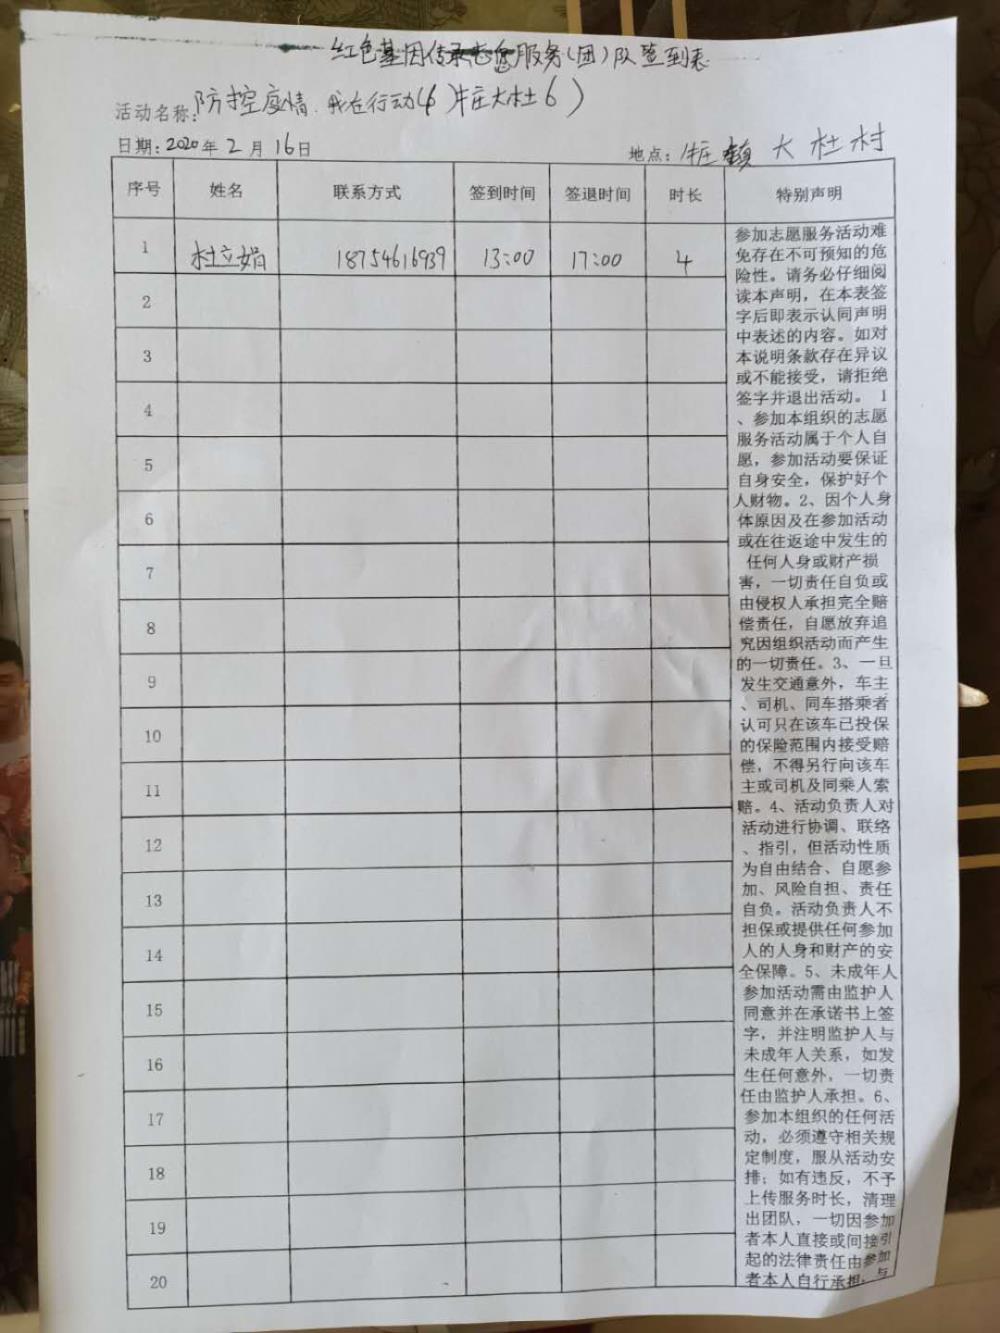 红色基因传承志愿服务(团)队签到表
活动名称:防控疫情.我在行动(牛庄大杜6)
日期:2020年2月16日
地点:牛庄镇大杜村
序号 姓名 联系方式 签到时间 签退时间 时长 特别声明
1 杜立娟 18754616939 13:00 17:00 4
2
3
4
5
6
7
8
9
10
11
12
13
14
15
16
17
18
19
20
参加志愿服务活动难
免存在不可预知的危
险性。请务必仔细阅
读本声明，在本表签
字后即表示认同声明
中表述的内容。如对
本说明条款存在异议
或不能接受，请拒绝
签字并退出活动。 1
、参加本组织的志愿
服务活动属于个人自
愿，参加活动要保证
自身安全，保护好个
人财物。2、因个人身
体原因及在参加活动
或在往返途中发生的
任何人身或财产损
害，一切责任自负或
由侵权人承担完全赔
偿责任，自愿放弃追
究因组织活动而产生
的一切责任。3、一旦
发生交通意外，车主
、司机、同车搭乘者
认可只在该车已投保
的保险范围内接受赔
偿，不得另行向该车
主或司机及同乘人索
赔。4、活动负责人对
活动进行协调、联络
、指引，但活动性质
为自由结合、自愿参
加、风险自担、责任
自负。活动负责人不
担保或提供任何参加
人的人身和财产的安
全保障。5、未成年人
参加活动需由监护人
同意并在承诺书上签
字，并注明监护人与
未成年人关系，如发
生任何意外，一切责
任由监护人承担。6、
参加本组织的任何活
动，必须遵守相关规
定制度，服从活动安
排；如有违反，不予
上传服务时长，清理
出团队，一切因参加
者本人直接或间接引
起的法律责任由参加
者本人自行承担，与